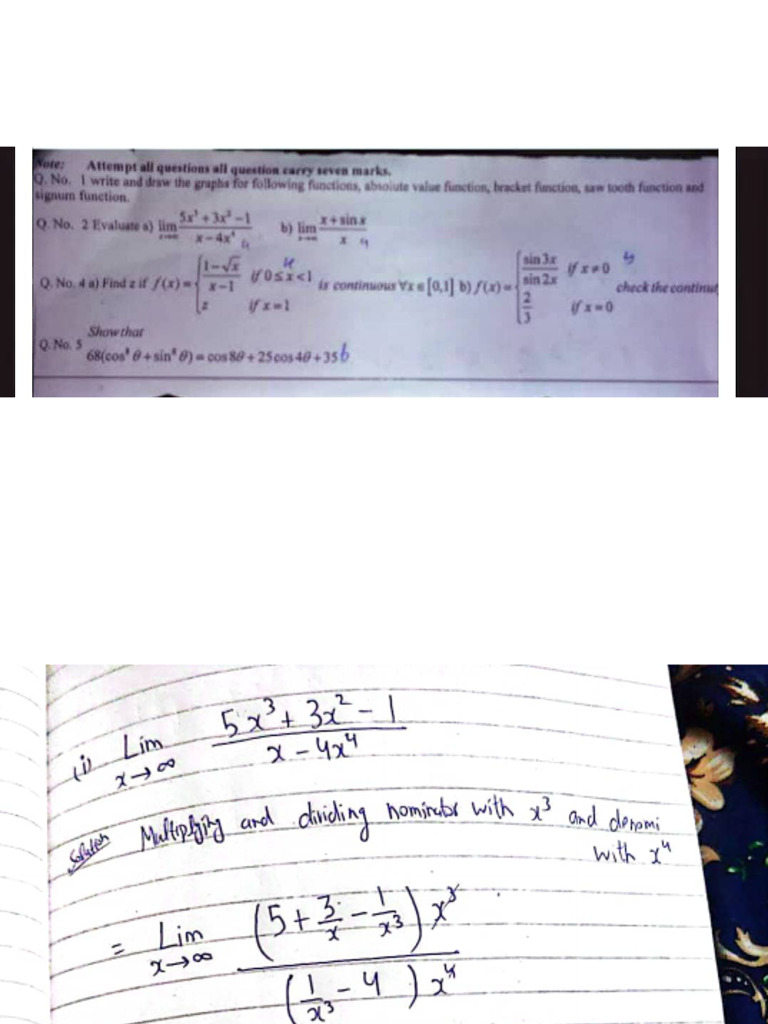 Note: Attempt all questions all question carry seven marks.
Q. No. 1 write and draw the graphs for following functions, absolute value function, bracket function, saw tooth function and
signum function.
Q. No. 2 Evaluate a) lim x→∞ (5x³ + 3x² − 1)/(x − 4x⁴) b) lim x→∞ (x + sin x)/x
Q. No. 4 a) Find z if f(x) = { (1 − √x)/(x − 1) if 0 ≤ x < 1 ; z if x = 1 is continuous ∀x ∈ [0,1] b) f(x) = { sin 3x / sin 2x if x ≠ 0 ; 2/3 if x = 0 check the continut
Q. No. 5 Show that
68(cos⁸ θ + sin⁸ θ) = cos 8θ + 25 cos 4θ + 35
(i) Lim x→∞ (5x³ + 3x² − 1)/(x − 4x⁴)
Solution Multiplying and dividing nominator with x³ and denomi
with x⁴
= Lim x→∞ (5 + 3/x − 1/x³) x³ / (1/x³ − 4) x⁴